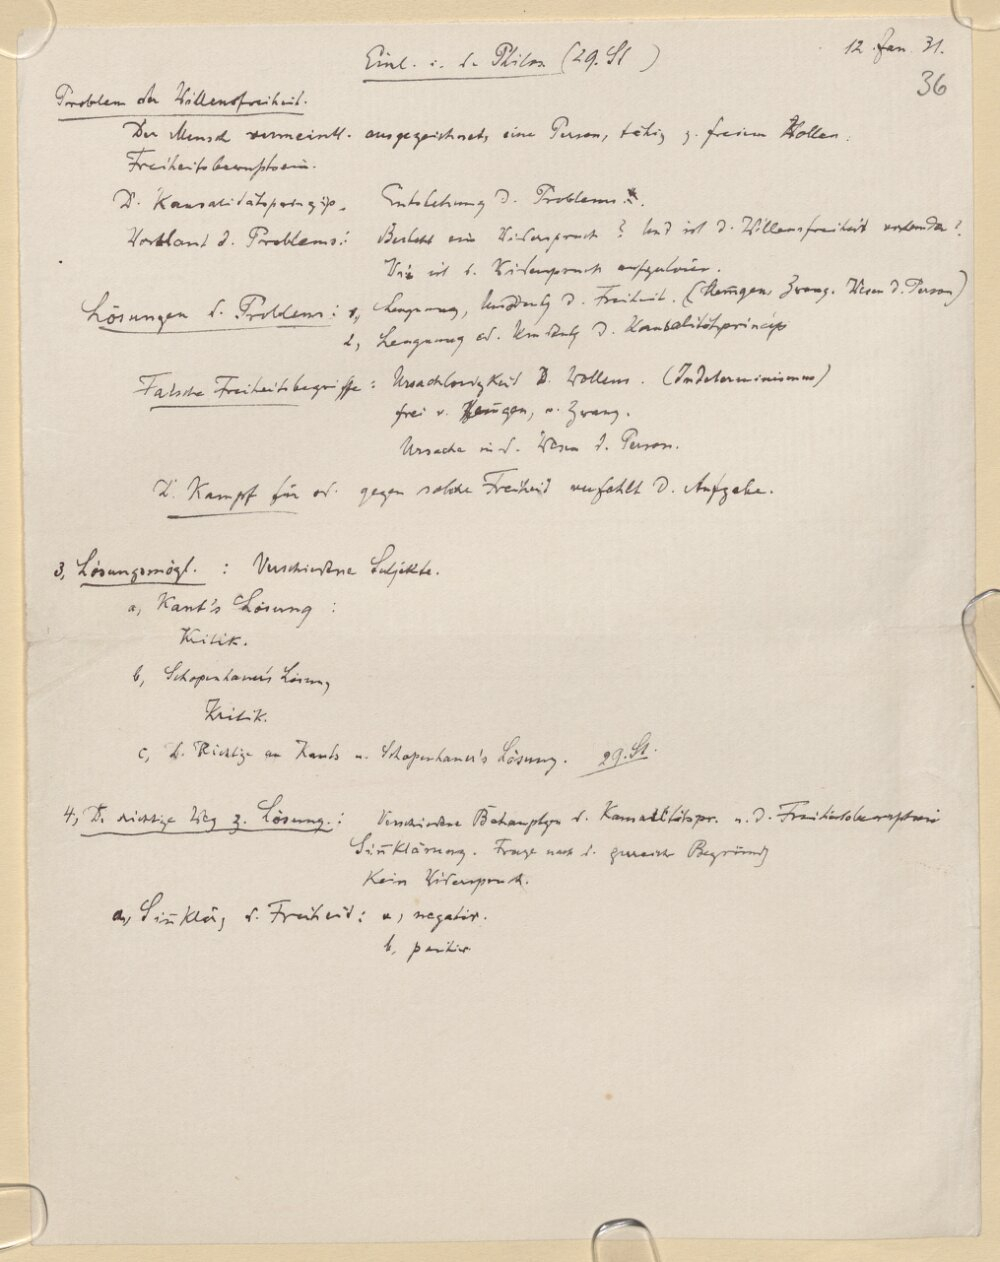 Einl. i. d. Philos. (29. St)
12. Jan. 31.
36
Problem der Willensfreiheit.
Der Mensch vermeintl. ausgezeichnet, eine Person, fähig z. freiem Wollen.
Freiheitsbewußtsein.
D. Kausalitätsprinzip. Entstehung d. Problems.
d. Problems: Besteht ein Widerspruch? Und ist d. Willensfreiheit vorhanden?
Wie ist d. Widerspruch aufzulösen.
Lösungen d. Problems: 1, Leugnung, Umdeutg d. Freiheit. (Hemgen, Zwang. Wesen d. Person)
2, Leugnung od. Umdeutg d. Kausalitätsprincips
Falsche Freiheitsbegriffe: Ursachlosigkeit d. Wollens. (Indeterminismus)
frei v. Hemgen, v. Zwang.
Ursache in d. Wesen d. Person.
D. Kampf für od. gegen solche Freiheit verfehlt d. Aufgabe.
3, Lösungsmögl. : Verschiedene Subjekte.
a, Kant's Lösung :
Kritik.
b, Schopenhauer's Lösung
Kritik.
c, D. Richtige an Kants u. Schopenhauer's Lösung. 29. St.
4, D. richtige Weg z. Lösung.: Verschiedene Behauptgen d. Kausalitätspr. u. d. Freiheitsbewußtseins
Sinklärung. Frage nach d. zureich. Begründg
Kein Widerspruch.
a, Sinklärg d. Freiheit: a, negativ.
b, positiv